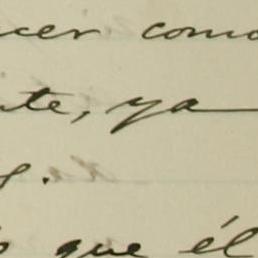 cer como
te, ya
s.
o que él